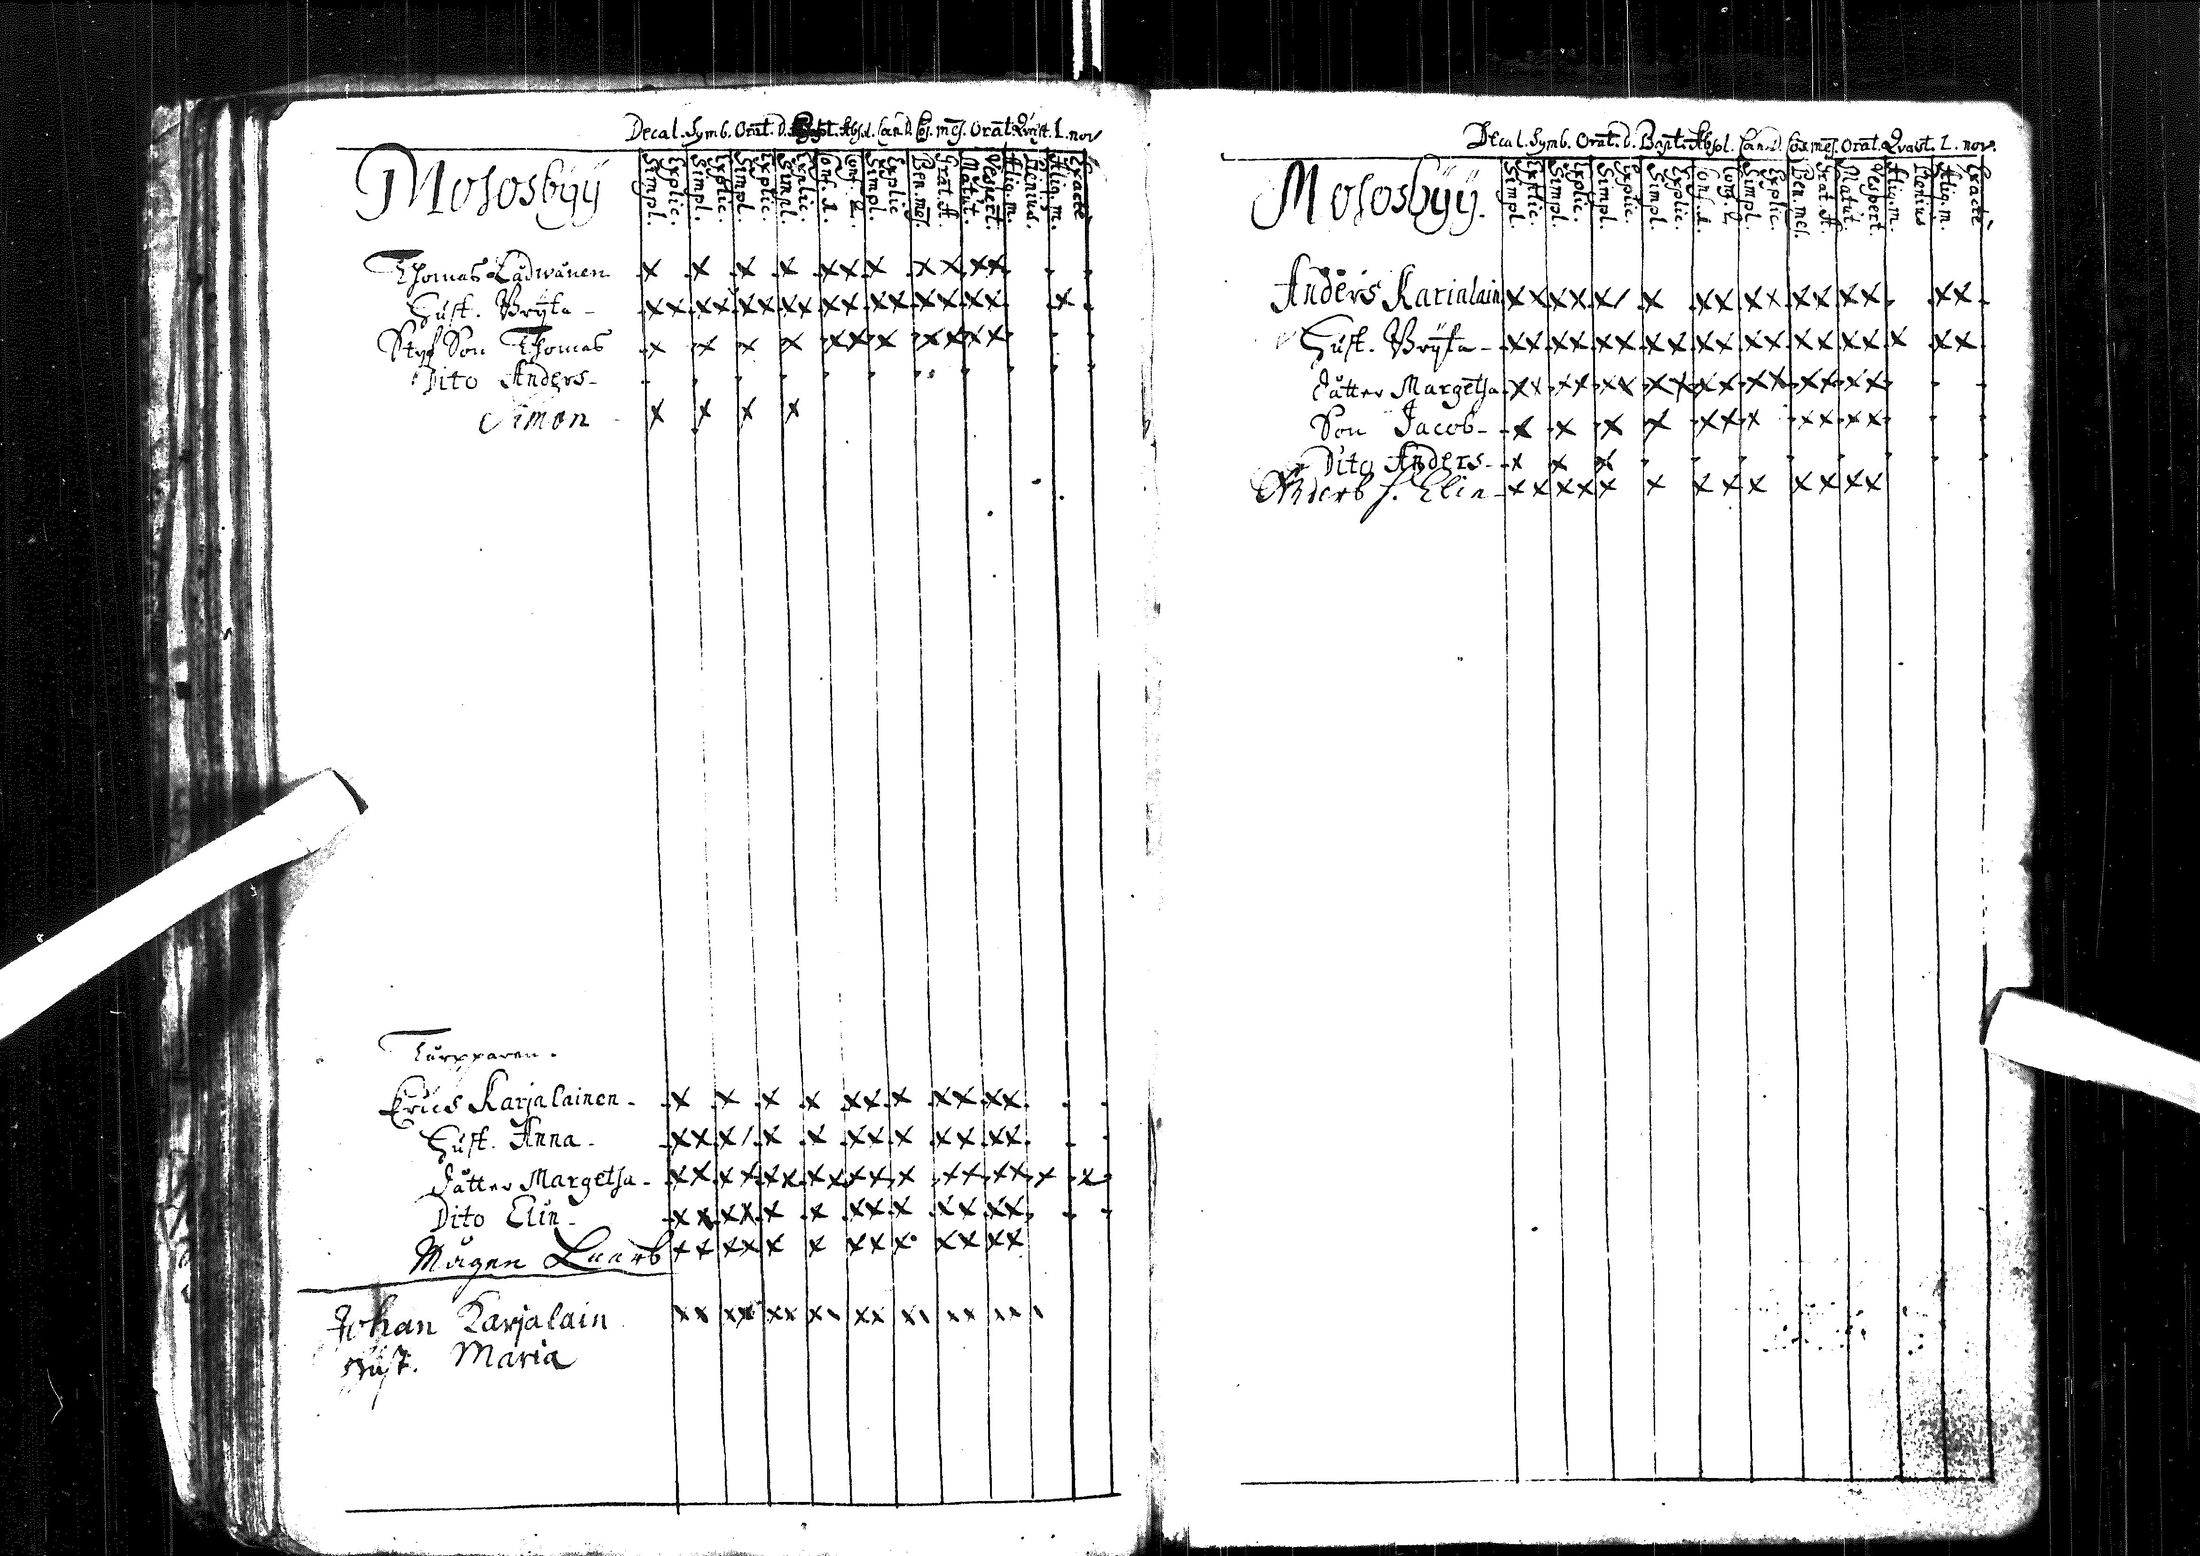 Decal. Symb. Orat. D. Bapt. Absol. Can. D. Cos. mes. Orat. Qvæst. L. nov
Simpl. Explic. Simpl. Explic. Simpl. Explic. Simpl. Explic. Conf. 1. Conf. 2. Simpl. Explic Ben. mes. Grat. A. Matut. Vespert. Aliq. m. Plenius. Aliq. m. Exacte
Mososbÿÿ
Thomas Ladwånen x x x x x x x x x x x
Hust. Brÿta - x x x x x x x x x x x x x x x x x
Styf Son Thomas x x x x x x x x x x x
Dito Anders -
Simon - x x x x
Turpparen.
Erics Karjalainen - x x x x x x x x x x x
Hust. Anna - x x x / x x x x x x x x x
Dåtter Margetha - x x x x x x x x x x x x x x x x x
Dito Elin - x x x x x x x x x x x x x
Mågen Laarb x x x x x x x x x x x x x
Johan Karjalain
Hust. Maria
Decal. Symb. Orat. D. Bapt. Absol. Can. D. Cos. mes. Orat. Qvæst. L. nov.
Simpl. Explic. Simpl. Explic. Simpl. Explic. Simpl. Explic. Conf. 1. Conf. 2 Simpl. Explic. Ben. mes. Grat. A. Matut. Vespert. Aliq. m. Plenius Aliq. m. Exacte
Mososbÿÿ.
Anders Karialain x x x x x / x x x x x x x x x x x
Hust. Brÿta - x x x x x x x x x x x x x x x x x x x
Dåtter Margetha x x x x x x x x x x x x x x x x
Son Jacob - x x x x x x x x x x x
Dito Anders - x x x
h. Elin - x x x x x x x x x x x x x